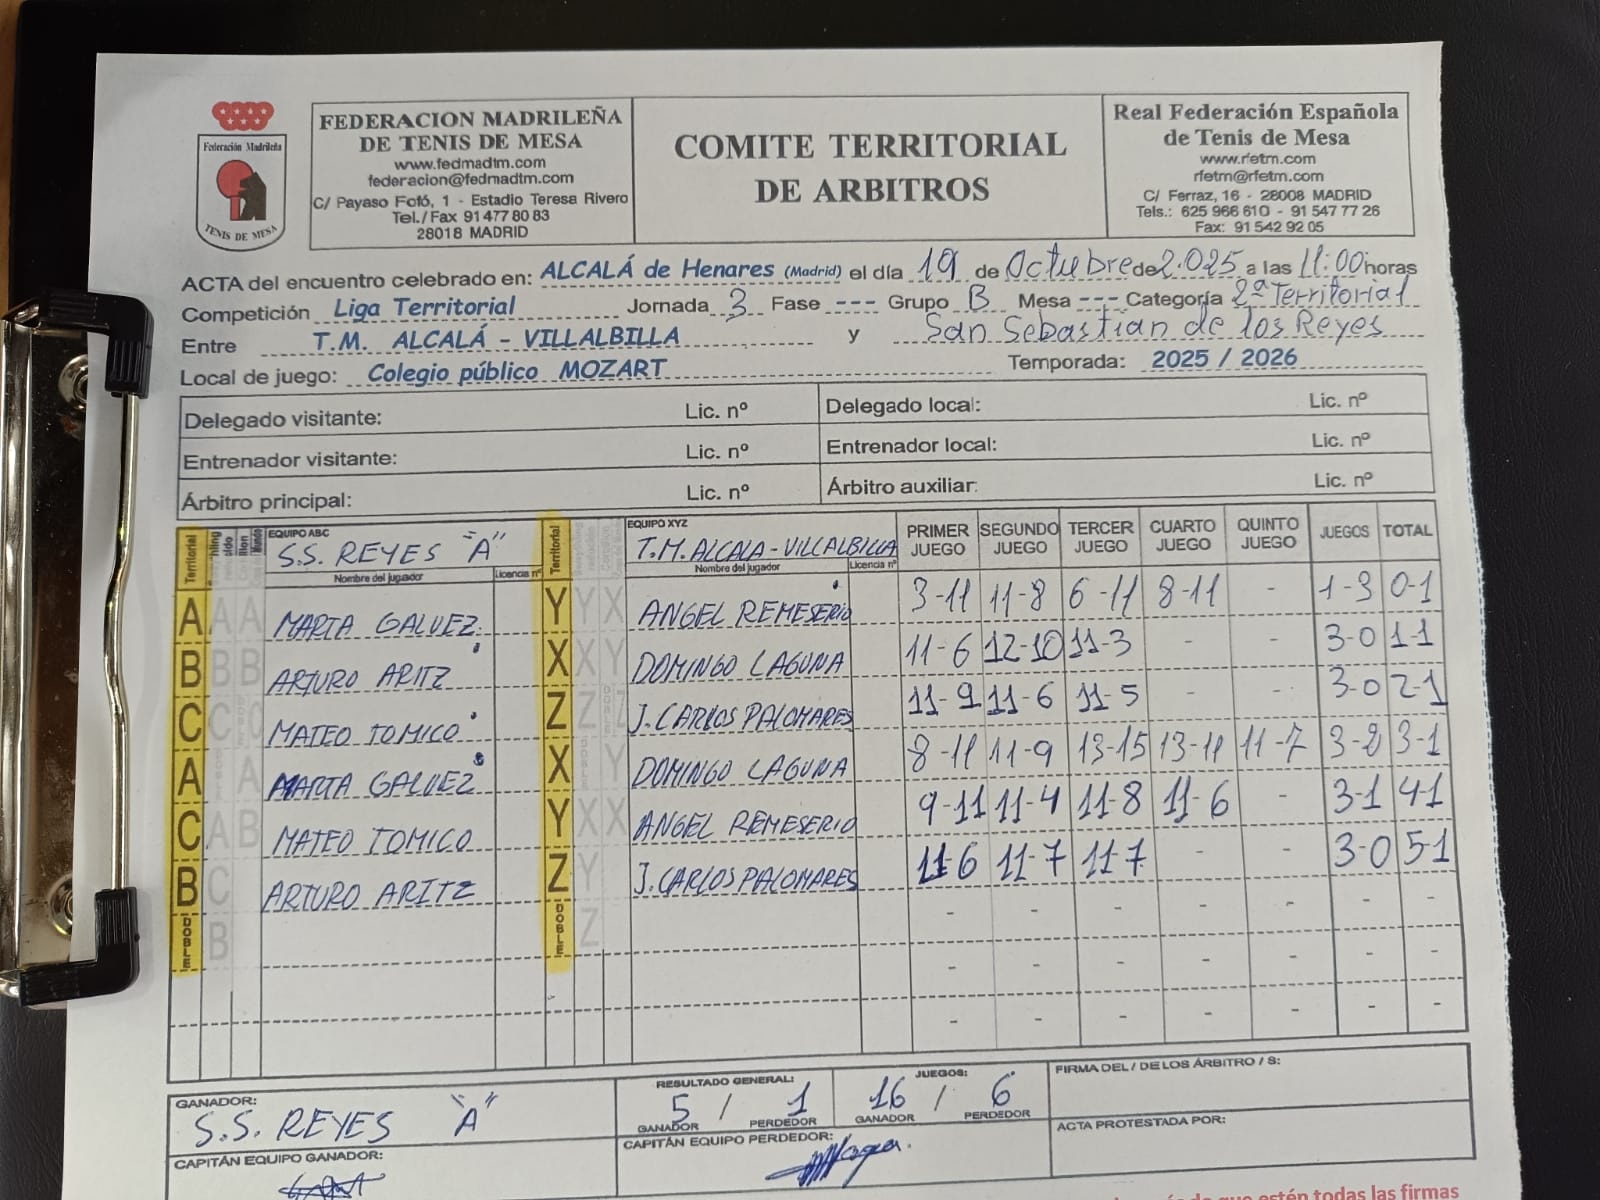 Federación Madrileña
TENIS DE MESA
FEDERACION MADRILEÑA
DE TENIS DE MESA
www.fedmadtm.com
federacion@fedmadtm.com
C/ Payaso Fofó, 1 - Estadio Teresa Rivero
Tel./ Fax 91 477 80 83
28018 MADRID
COMITE TERRITORIAL
DE ARBITROS
Real Federación Española
de Tenis de Mesa
www.rfetm.com
rfetm@rfetm.com
C/ Ferraz, 16 - 28008 MADRID
Tels.: 625 966 610 - 91 547 77 26
Fax: 91 542 92 05
ACTA del encuentro celebrado en: ALCALÁ de Henares (Madrid) el día 19 de Octubre de 2.025 a las 11:00 horas
Competición Liga Territorial Jornada 3 Fase --- Grupo B Mesa --- Categoría 2ª Territorial
Entre T.M. ALCALÁ - VILLALBILLA y San Sebastian de los Reyes
Local de juego: Colegio público MOZART Temporada: 2025 / 2026
Delegado visitante: Lic. nº Delegado local: Lic. nº
Entrenador visitante: Lic. nº Entrenador local: Lic. nº
Árbitro principal: Lic. nº Árbitro auxiliar: Lic. nº
Territorial EQUIPO ABC S.S. REYES "A" Territorial EQUIPO XYZ T.M. ALCALA-VILLALBILLA PRIMER JUEGO SEGUNDO JUEGO TERCER JUEGO CUARTO JUEGO QUINTO JUEGO JUEGOS TOTAL
Nombre del jugador Licencia nº Nombre del jugador Licencia nº
A A A MARTA GALVEZ Y Y X ANGEL REMESERIO 3-11 11-8 6-11 8-11 - 1-3 0-1
B B B ARTURO ARITZ X X Y DOMINGO LAGUNA 11-6 12-10 11-3 - - 3-0 1-1
C C C MATEO TOMICO Z Z Z J. CARLOS PALOMARES 11-9 11-6 11-5 - - 3-0 2-1
A A MARTA GALVEZ X Y DOMINGO LAGUNA 8-11 11-9 13-15 13-11 11-7 3-2 3-1
C A B MATEO TOMICO Y X X ANGEL REMESERIO 9-11 11-4 11-8 11-6 - 3-1 4-1
B C ARTURO ARITZ Z Y J. CARLOS PALOMARES 11-6 11-7 11-7 - - 3-0 5-1
DOBLE B DOBLE Z - - - - - - -
- - - - - - -
- - - - - - -
GANADOR: S.S. REYES "A"
RESULTADO GENERAL: 5 / 1
GANADOR PERDEDOR
JUEGOS: 16 / 6
GANADOR PERDEDOR
FIRMA DEL / DE LOS ÁRBITRO / S:
CAPITÁN EQUIPO GANADOR:
CAPITÁN EQUIPO PERDEDOR:
ACTA PROTESTADA POR:
que estén todas las firmas